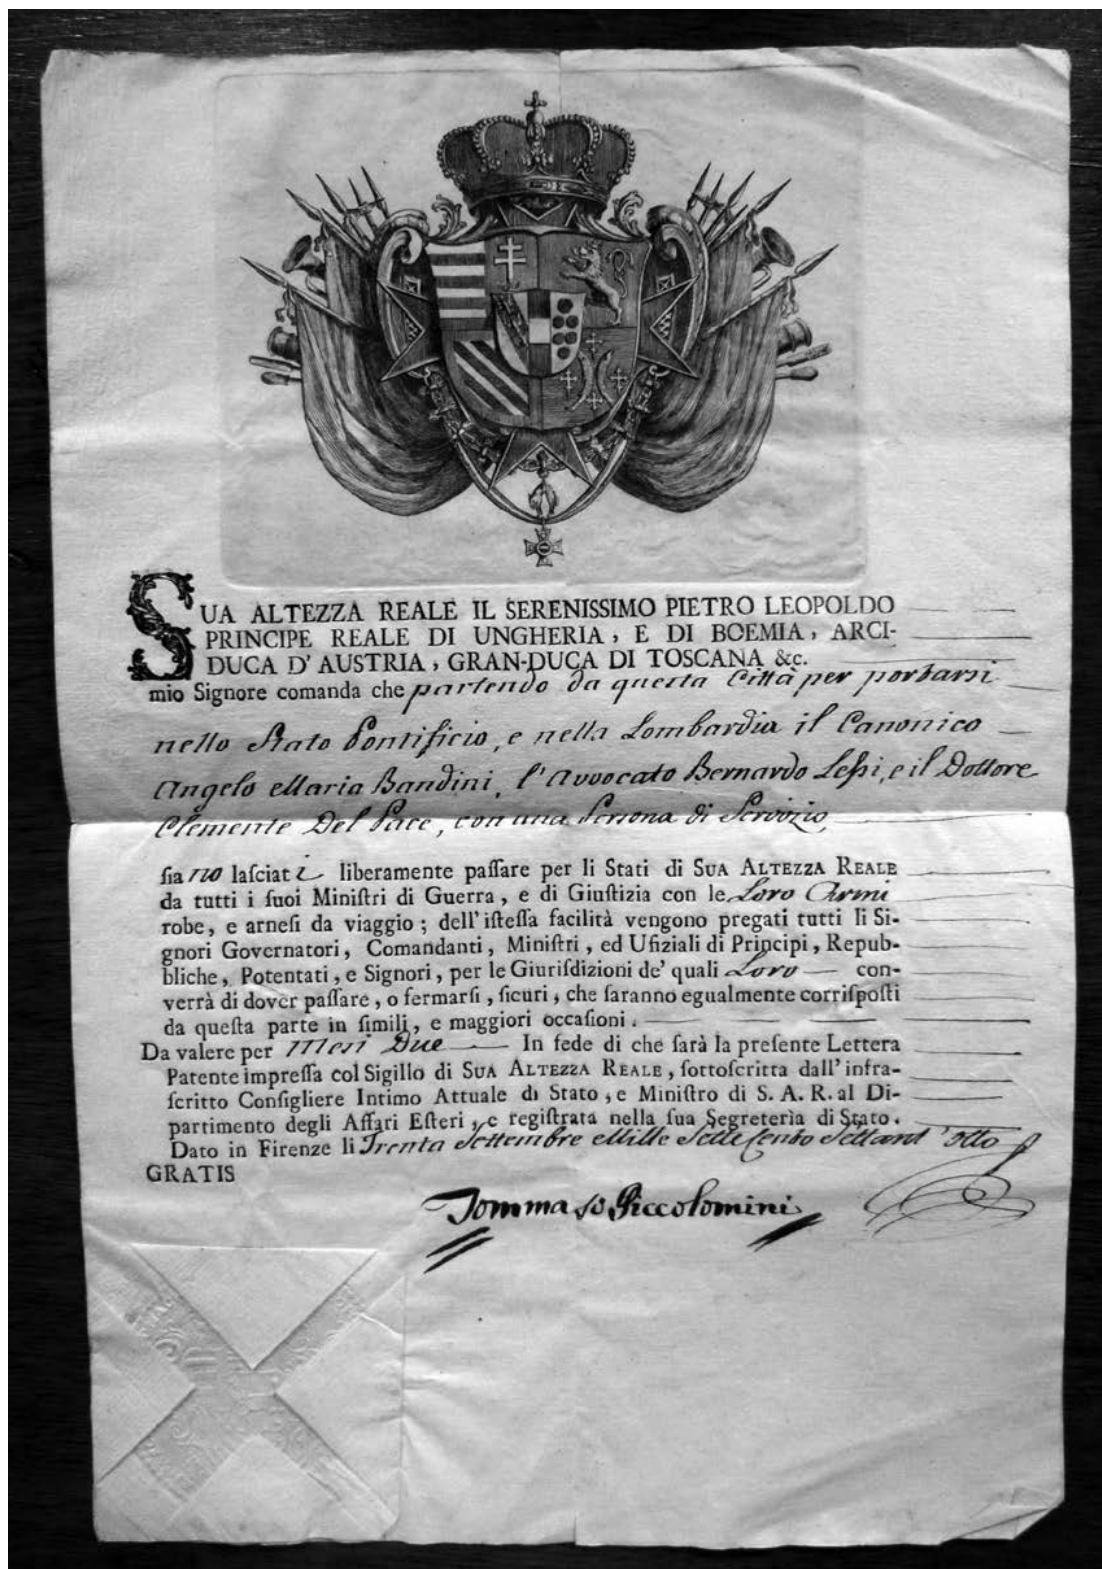 SUA ALTEZZA REALE IL SERENISSIMO PIETRO LEOPOLDO
PRINCIPE REALE DI UNGHERIA, E DI BOEMIA, ARCI-
DUCA D' AUSTRIA, GRAN-DUCA DI TOSCANA &c.
mio Signore comanda che partendo da questa Città per portarsi
nello Stato Pontificio, e nella Lombardia il Canonico
Angelo Maria Bandini, l'Avvocato Bernardo Leſsi, e il Dottore
Clemente Del Pace, con una Persona di Servizio
ſia no laſciat i liberamente paſſare per li Stati di SUA ALTEZZA REALE
da tutti i ſuoi Miniſtri di Guerra, e di Giuſtizia con le Loro Armi
robe, e arneſi da viaggio; dell' iſteſſa facilità vengono pregati tutti li Si-
gnori Governatori, Comandanti, Miniſtri, ed Ufiziali di Principi, Repub-
bliche, Potentati, e Signori, per le Giuriſdizioni de' quali Loro — con-
verrà di dover paſſare, o fermarſi, ſicuri, che ſaranno egualmente corriſpoſti
da queſta parte in ſimili, e maggiori occaſioni.
Da valere per Mesi Due — In fede di che ſarà la preſente Lettera
Patente impreſſa col Sigillo di SUA ALTEZZA REALE, ſottoſcritta dall' infra-
ſcritto Conſigliere Intimo Attuale di Stato, e Miniſtro di S. A. R. al Di-
partimento degli Affari Eſteri, e regiſtrata nella ſua Segreterìa di Stato.
Dato in Firenze li Trenta Settembre Mille Sette Cento Settant' otto
GRATIS
Tommaso Piccolomini